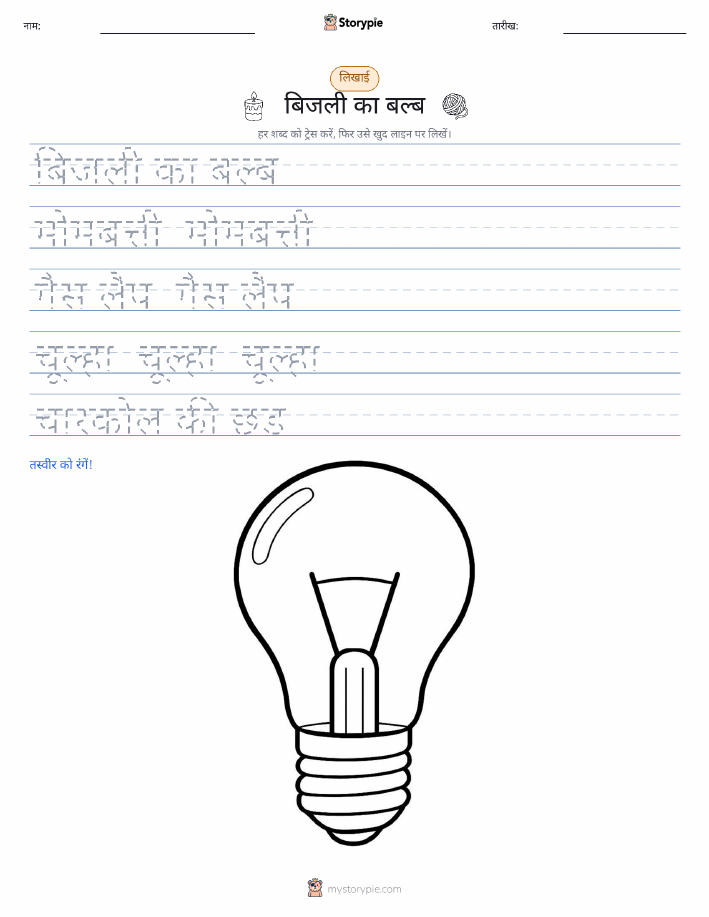 नाम:
Storypie
तारीख:
लिखाई
बिजली का बल्ब
हर शब्द को ट्रेस करें, फिर उसे खुद लाइन पर लिखें।
बिजली का बल्ब
मोमबत्ती मोमबत्ती
गैस लैंप गैस लैंप
चूल्हा चूल्हा चूल्हा
चारकोल की छड़
तस्वीर को रंगें!
mystorypie.com